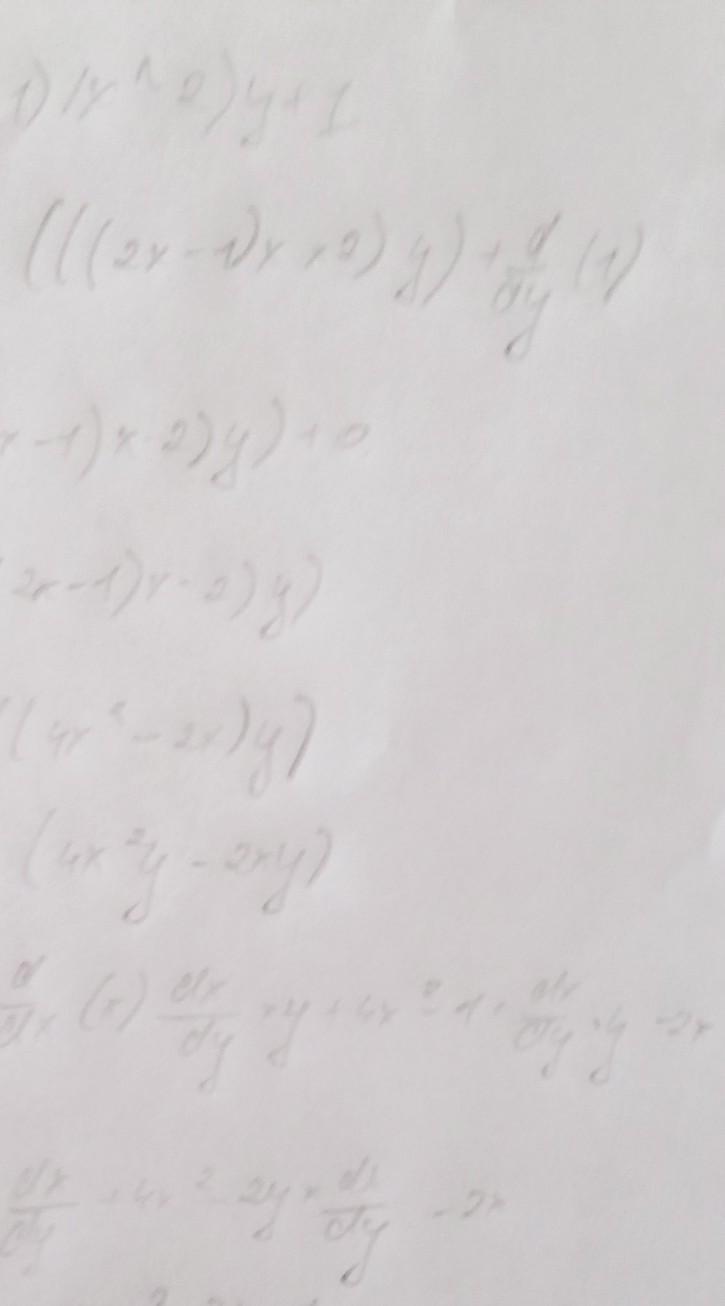 1)(x × 2)y + 1
(((2x - 1)x × 2)y) + d/dy (1)
x - 1)x · 2)y) + 0
2x - 1)x · 2)y)
((4x² - 2x)y)
(4x²y - 2xy)
d/dx (x) dx/dy × y + 4x² - 1 · dx/dy · y - 2x
dx/dy + 4x² - 2y × dx/dy - 2x